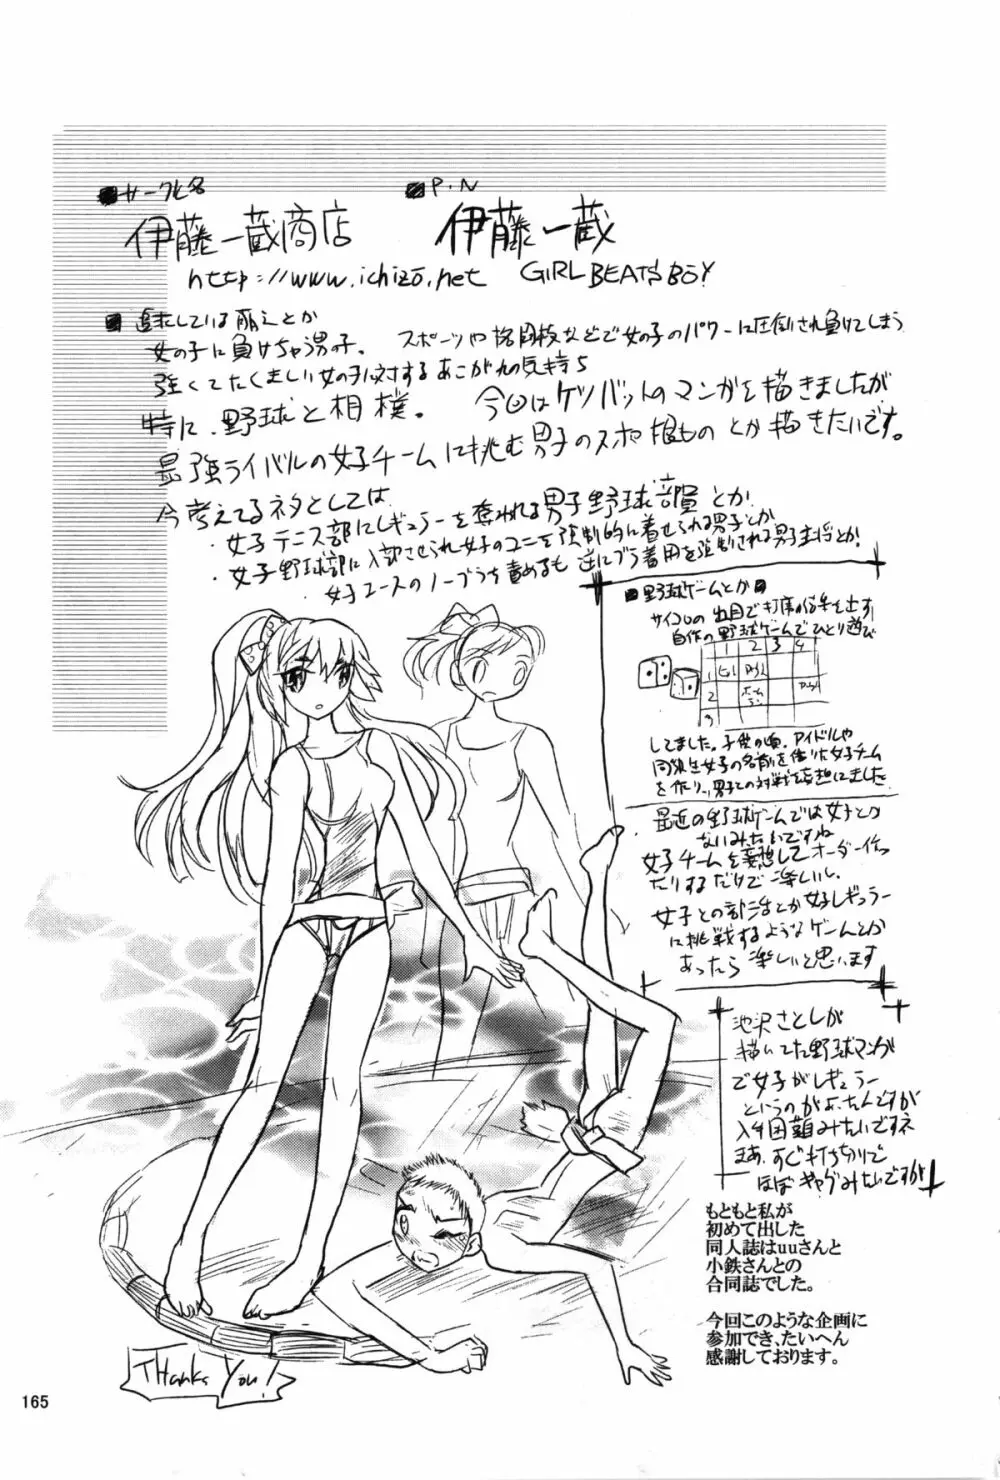 ■サークル名
伊藤一蔵商店
■P.N
伊藤一蔵
http://www.ichizo.net GIRL BEATS BOY
■追求している萌えとか
女の子に負けちゃう男子。 スポーツや格闘技などで女の子のパワーに圧倒され負けてしまう
強くてたくましい女の子に対するあこがれの気持ち
特に、野球と相撲。 今回はケツバットのマンガを描きましたが
最強ライバルの女子チームに挑む男子のスポ根もの とか描きたいです。
今考えてるネタとしては
・女子テニス部にレギュラーを奪われる男子野球部員とか
・女子野球部に入部させられ女子のユニを強制的に着せられる男子とか
・女子ユースのノーブラを責めるも逆にブラ着用を強制される男子主将とか!
■野球ゲームとか■
サイコロの出目で打席の結果を出す
自作の野球ゲームでひとり遊び
1 2 3 4
1
2 ホーム
3
してました。子供の頃、アイドルや
同級生女子の名前を借りた女子チーム
を作り、男子との対戦を妄想しました
最近の野球ゲームでは女子とか
ないみたいですね
女子チームを妄想してオーダー作っ
たりするだけで楽しいし、
女子との部活とか女子レギュラー
に挑戦するようなゲームとか
あったら楽しいと思います
池沢さとしが
描いてた野球マンガ
で女子がレギュラー
というのがあったんですが
入手困難みたいですネ
まあ、すぐ打ちきりで
ほぼギャグみたいですが
もともと私が
初めて出した
同人誌はuuさんと
小鉄さんとの
合同誌でした。
今回このような企画に
参加でき、たいへん
感謝しております。
THanks You!
165